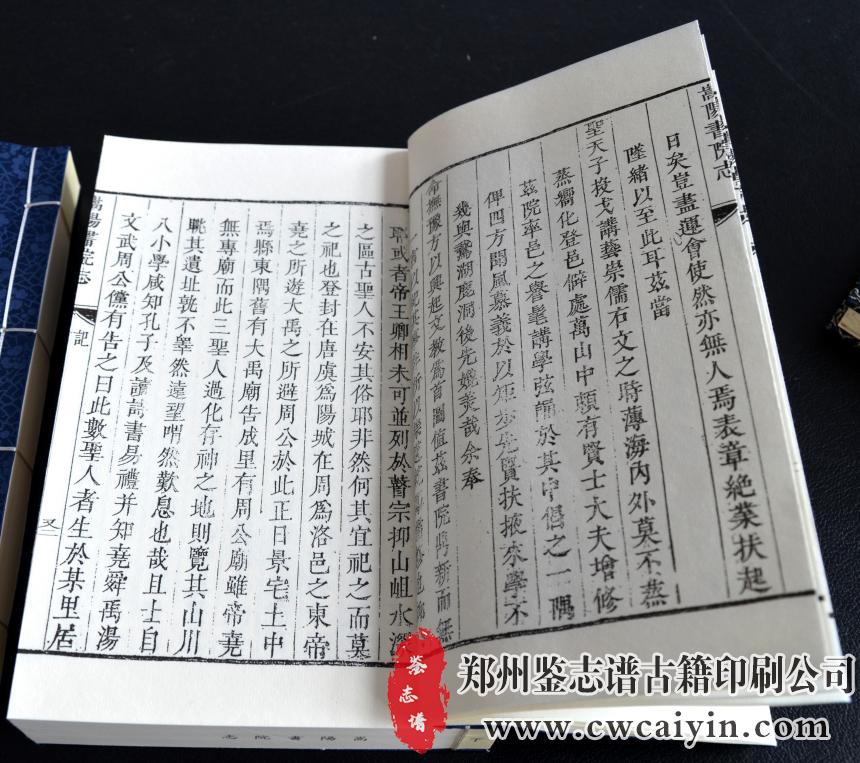 嵩陽書院志
日矣豈盡運會使然亦無人焉表章絶業扶起
墜緒以至此耳茲當
聖天子投戈講藝崇儒右文之時薄海内外莫不蒸
蒸嚮化登邑僻處萬山中頗有賢士大夫增修
茲院率邑之譽髦講學弦誦於其中倡之一隅
俾四方聞風慕義於以矩步先賢扶掖來學不
幾與鵞湖鹿洞後先媲美哉余奉
命撫豫方以興起文教爲首圖值茲書院鼎新而無
耶或者帝王卿相未可並列於瞽宗抑山岨水深
之區古聖人不安其俗耶非然何其宜祀之而莫
之祀也登封在唐虞爲陽城在周爲洛邑之東帝
堯之所遊大禹之所避周公於此正日景宅土中
焉縣東隅舊有大禹廟告成里有周公廟雖帝堯
無專廟而此三聖人過化存神之地則覽其山川
眺其遺址孰不睪然遠望喟然歎息也哉且士自
八小學咸知孔子及讀詩書易禮并知堯舜禹湯
文武周公儻有告之曰此數聖人者生於某里居
嵩陽書院志
記
又二
嵩陽書院志
下
鉴志谱
郑州鉴志谱古籍印刷公司
www.cwcaiyin.com